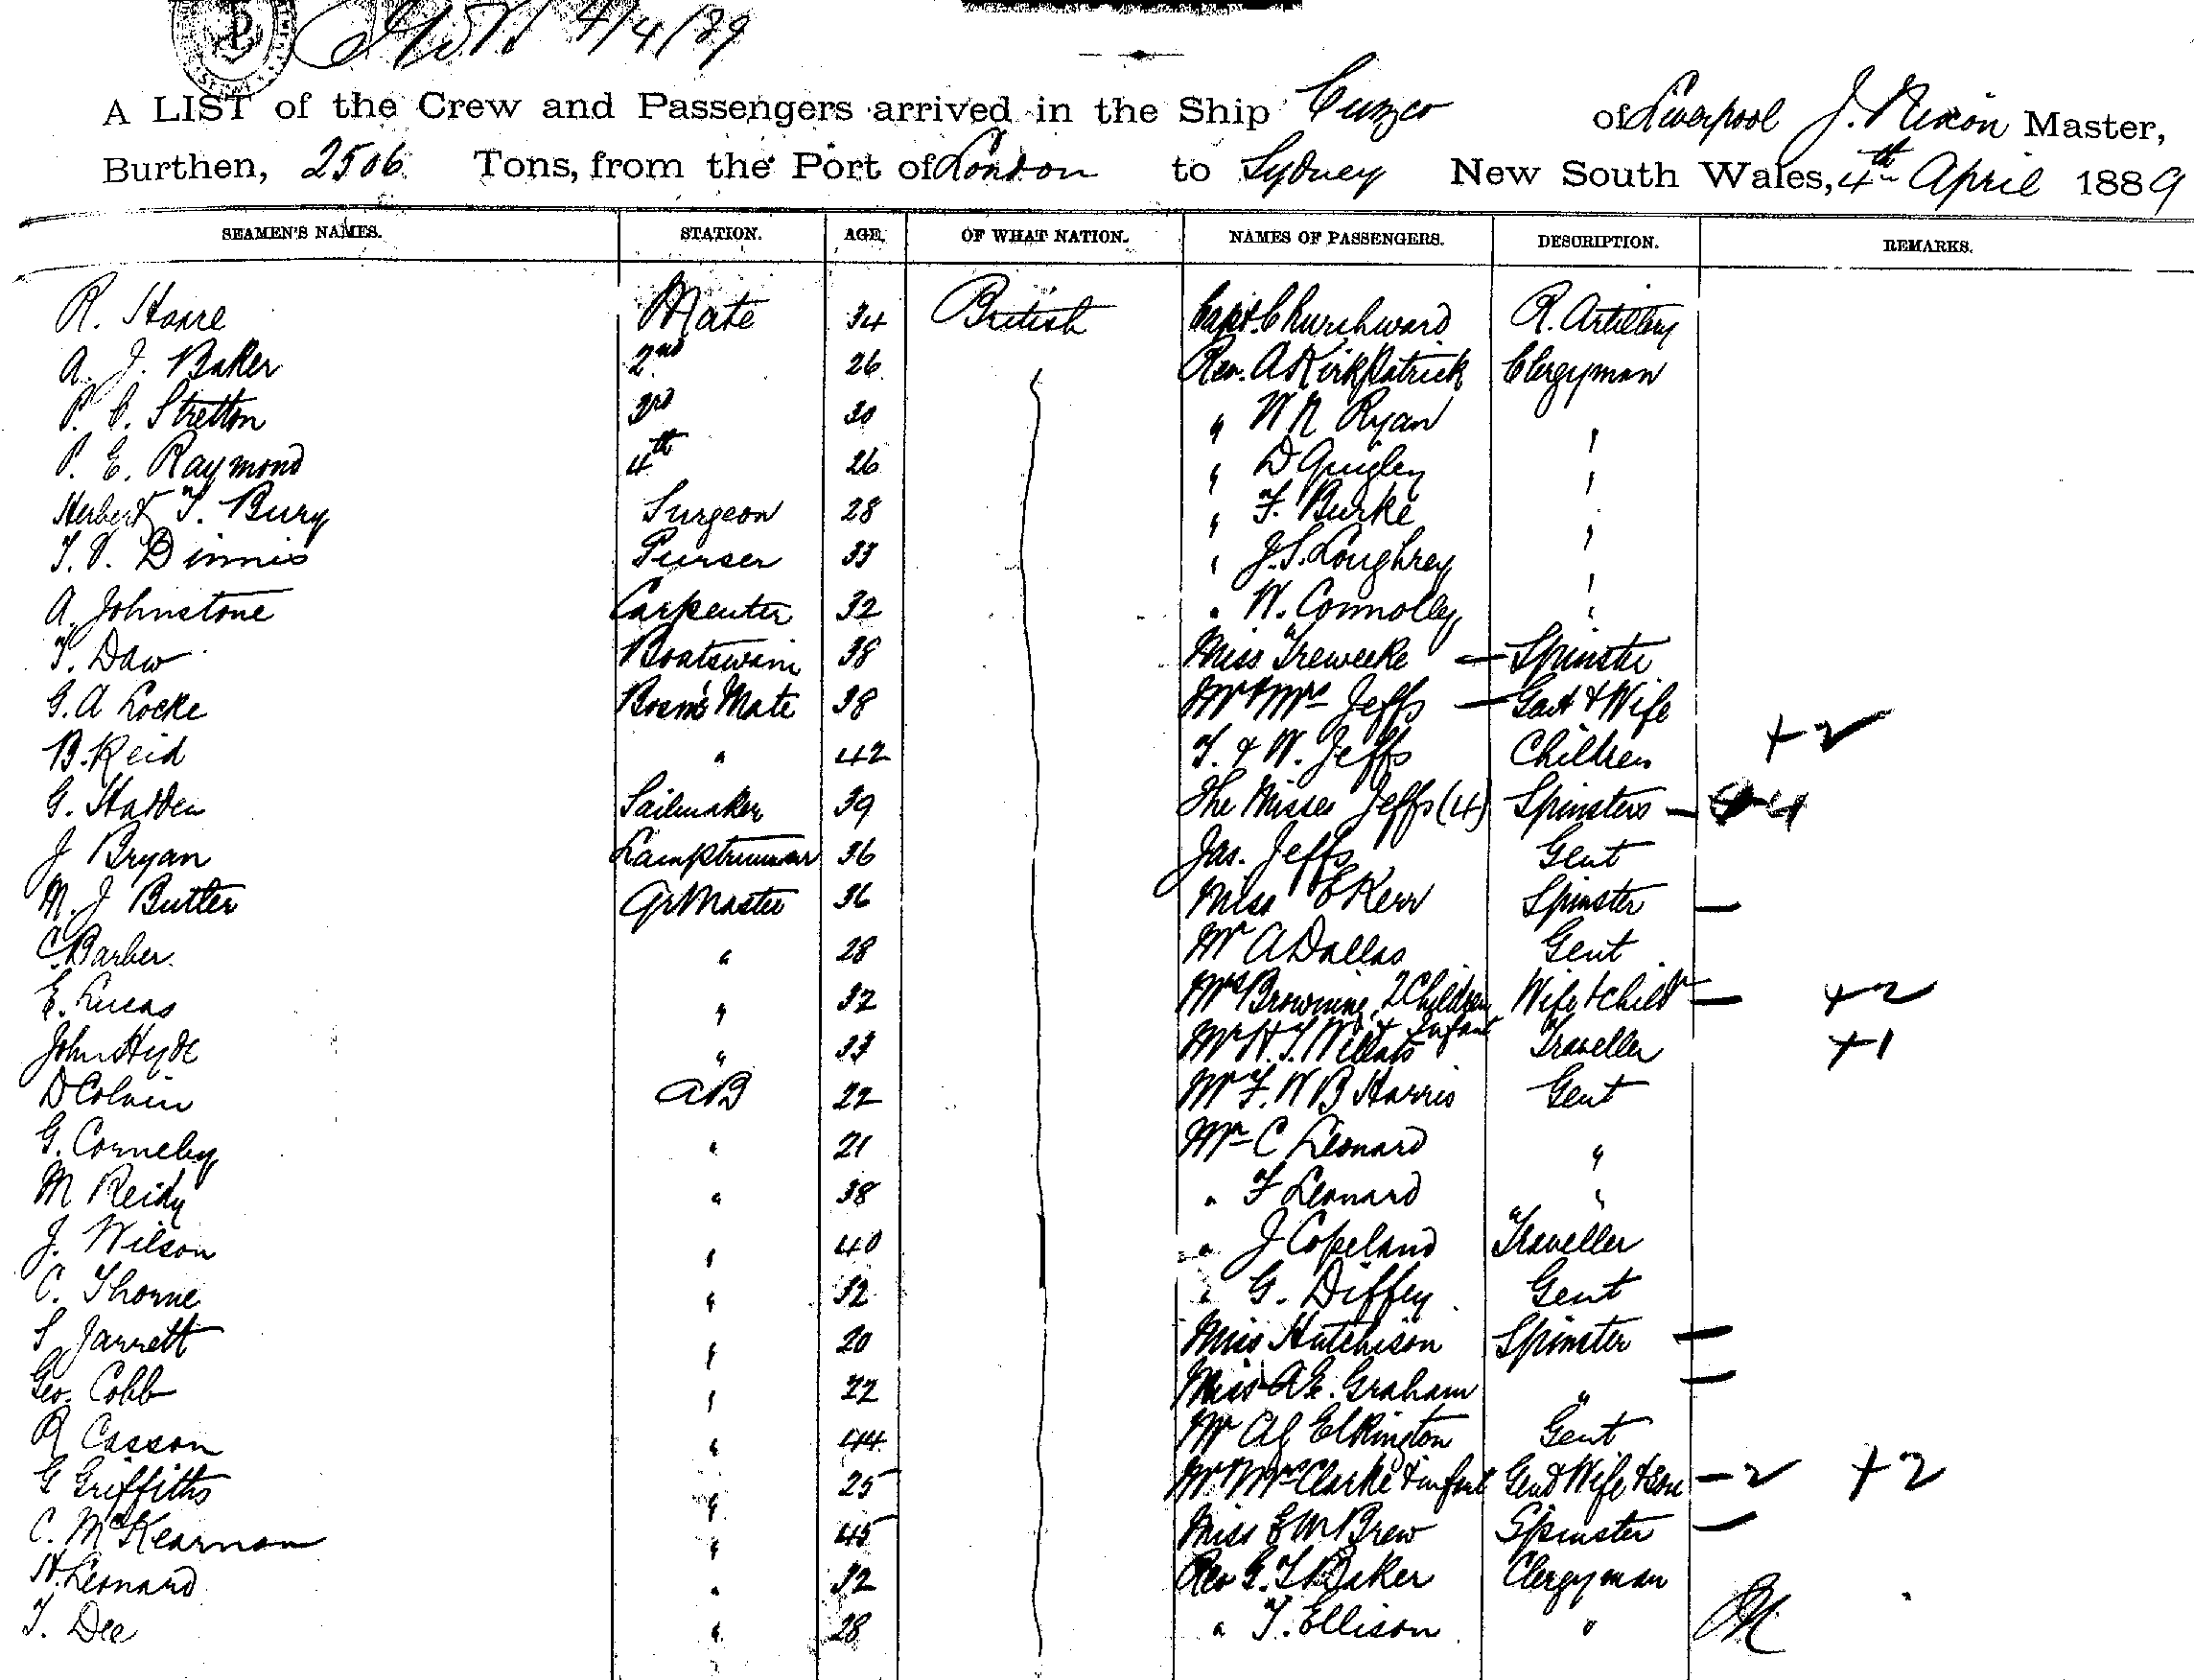 4/4/89
A LIST of the Crew and Passengers arrived in the Ship Cuzco of Liverpool J. Nixon Master,
Burthen, 2506 Tons, from the Port of London to Sydney New South Wales, 4th April 1889
SEAMEN'S NAMES. STATION. AGE. OF WHAT NATION. NAMES OF PASSENGERS. DESCRIPTION. REMARKS.
R. Hoare Mate 34 British Capt. Churchward R. Artillery
A. J. Baker 2nd 26 Rev. A Kirkpatrick Clergyman
P. C. Stretton 3rd 30 " W N Ryan "
P. E. Raymond 4th 26 " D Quigley "
Herbert T. Bury Surgeon 28 " F. Burke "
T. V. Dinnis Purser 33 " J. S. Loughrey "
A. Johnstone Carpenter 32 " W. Connolly "
T. Daw Boatswain 38 Miss Treweeke — Spinster
G. A Locke Bosn's Mate 38 Mr & Mrs Jeffs — Gent & Wife
B. Reid " 42 T. & W. Jeffs Children +2
G. Hadden Sailmaker 39 The Misses Jeffs (4) Spinsters — 4
J Bryan Lamptrimmer 36 Jas. Jeffs Gent
M. J Butler Qr Master 36 Miss E Kerr Spinster —
C. Barber " 28 Mr A Dallas Gent
E. Lucas " 32 Mrs Browning, 2 Children & Infant Wife & child — +2
John Hyde " 33 Mr H. T. Willats Traveller +1
D Colvin AB 22 Mr F. W B Harris Gent
G. Corneby " 21 Mr C Leonard "
M Reidy " 38 " F Leonard "
J. Wilson " 40 " J Copeland Traveller
C. Thorne " 32 " G. Diffey Gent
S Jarrett " 20 Miss Hutchison Spinster —
Geo. Cobb " 22 Miss A E. Graham " —
R Casson " 44 Mr Elkington Gent
G Griffiths " 25 Mr & Mrs Clarke & infant Gent Wife & Son — 2 +2
C. McKearnon " 45 Miss E M Brew Spinster —
H. Leonard " 32 Rev G. T Baker Clergyman
T. Dee " 28 " T. Ellison "